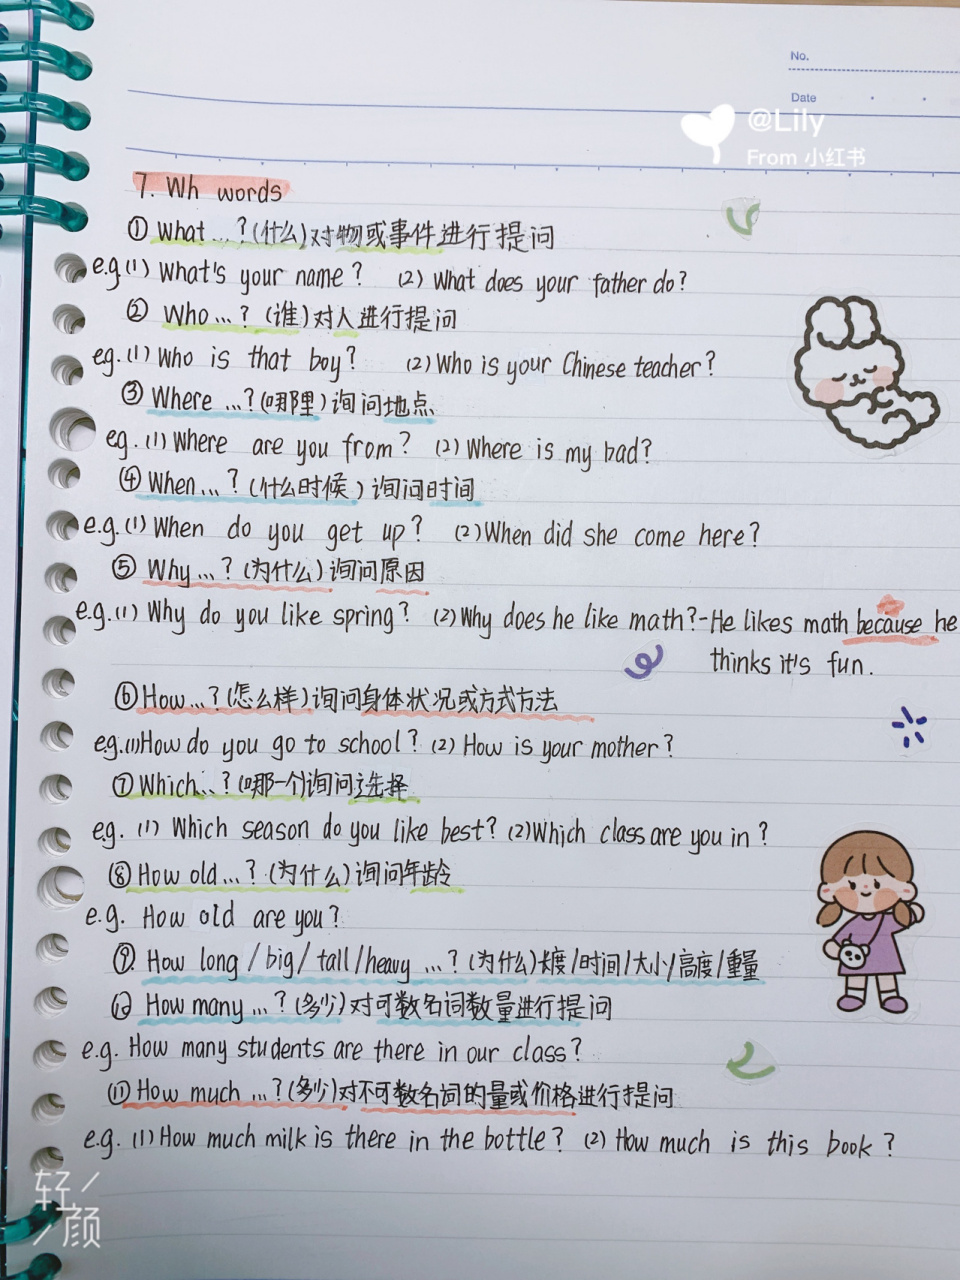 No.
Date
@Lily
From 小红书
7. Wh words
① What ...? (什么) 对物或事件进行提问
e.g (1) What's your name? (2) What does your father do?
② Who ...? (谁) 对人进行提问
eg. (1) Who is that boy? (2) Who is your Chinese teacher?
③ Where ...? (哪里) 询问地点
eg. (1) Where are you from? (2) Where is my bad?
④ When ...? (什么时候) 询问时间
e.g. (1) When do you get up? (2) When did she come here?
⑤ Why ...? (为什么) 询问原因
e.g. (1) Why do you like spring? (2) Why does he like math? - He likes math because he
thinks it's fun.
⑥ How ...? (怎么样) 询问身体状况或方式方法
e.g. (1) How do you go to school? (2) How is your mother?
⑦ Which ...? (哪一个) 询问选择
e.g. (1) Which season do you like best? (2) Which class are you in?
⑧ How old ...? (为什么) 询问年龄
e.g. How old are you?
⑨ How long / big / tall / heavy ...? (为什么) 长度 / 时间 / 大小 / 高度 / 重量
How many ...? (多少) 对可数名词数量进行提问
e.g. How many students are there in our class?
⑪ How much ...? (多少) 对不可数名词的量或价格进行提问
e.g. (1) How much milk is there in the bottle? (2) How much is this book?
轻颜